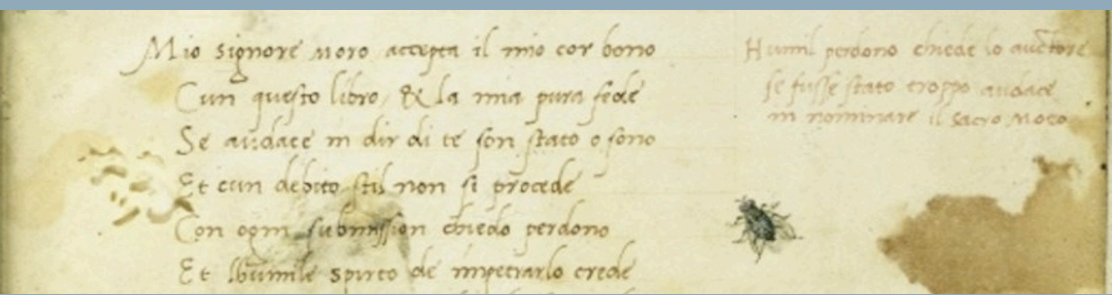 Mio signore moro accepta il mio cor bono
Cun questo libro, & la mia pura fede
Se audace in dir di te son stato o sono
Et cun debito stil non si procede
Con ogni submission chiedo perdono
Et lhumile spirto de impetrarlo crede
Humil perdono chiede lo auctore
se fusse stato troppo audace
in nominare il sacro Moro